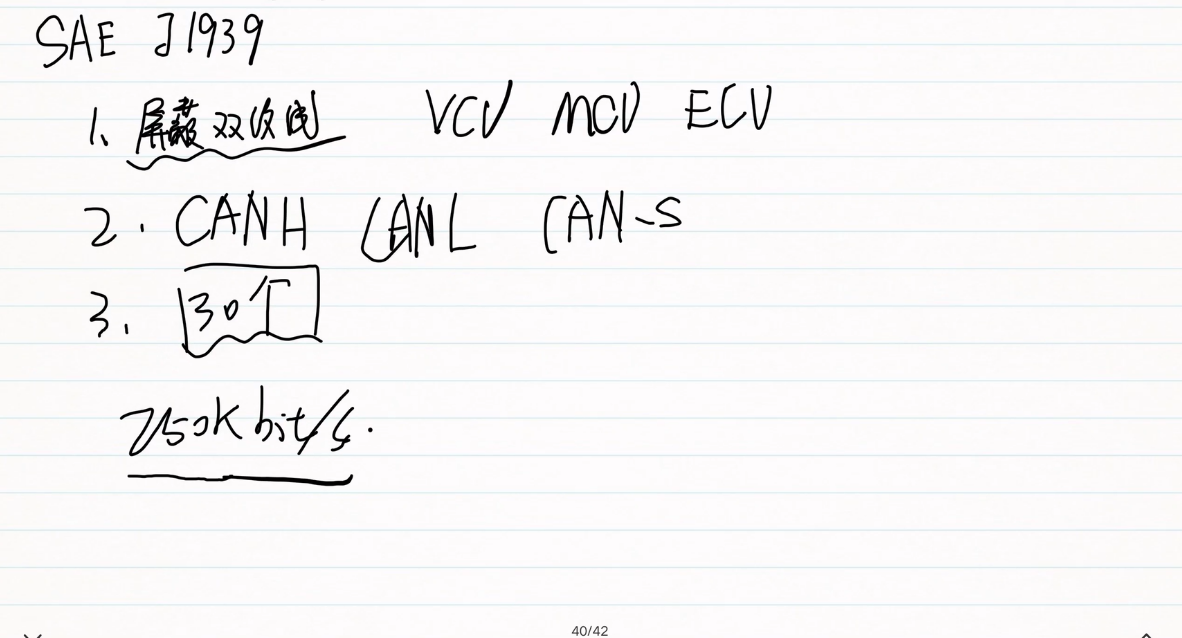 SAE J1939
1、屏蔽双绞线 VCU MCU ECU
2. CANH CANL CAN-S
3. 30个
250K bit/s.
40/42